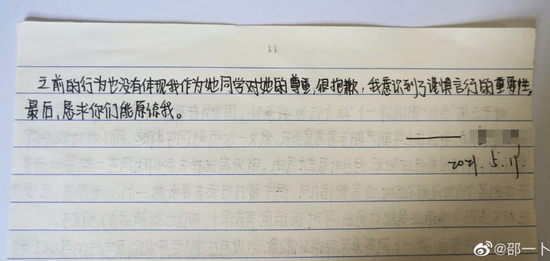 之前的行为也没有体现我作为她同学对她的尊重,很抱歉,我意识到了谨慎言行的重要性,
最后,恳求你们能原谅我。
2021.5.19
@邵一卜